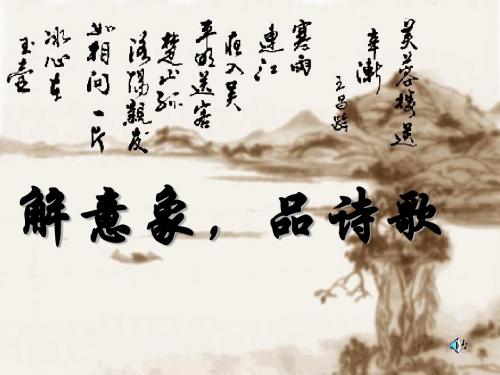 芙蓉樓送
辛漸
王昌齡
寒雨
連江
夜入吴
平明送客
楚山孤
洛陽親友
如相问一片
冰心在
玉壺
解意象，品诗歌